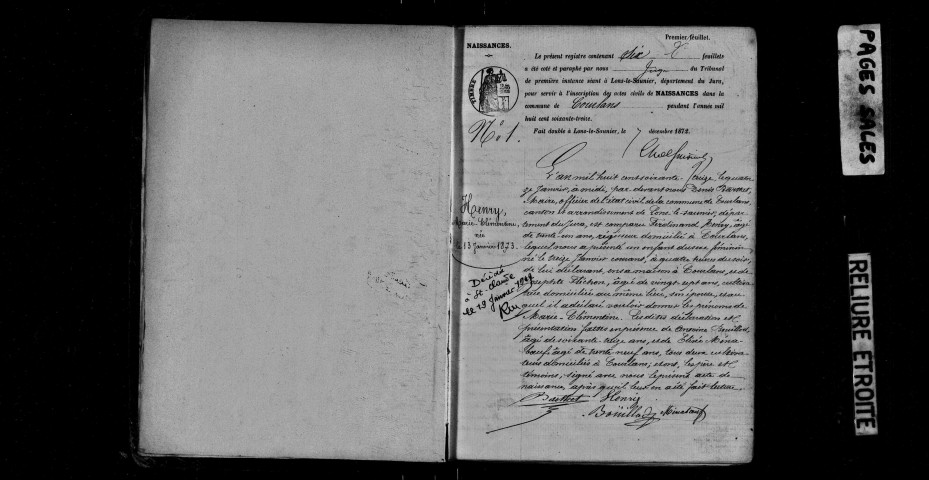 Premier feuillet.
NAISSANCES.
Le présent registre contenant dix feuillets
a été coté et paraphé par nous Juge du Tribunal
de première instance séant à Lons-le-Saunier, département du Jura,
pour servir à l'inscription des actes civils de NAISSANCES dans la
commune de Courlans pendant l'année mil
huit cent soixante-treize.
Fait double à Lons-le-Saunier, le 7 décembre 1872.
TIMBRE
N° 1.
Henry,
Marie-Clémentine,
née
le 13 Janvier 1873.
Décédée
à St. Claude
le 19 Janvier
L'an mil huit cent soixante-treize, le quator
ze Janvier, à midi, par devant nous Denis
Maire, officier de l'état civil de la commune de Courlans,
canton et arrondissement de Lons-le-saunier, dépar
tement du Jura, est comparu Ferdinand Henry, âgé
de trente-un ans, domicilié à Courlans,
lequel nous a présenté un enfant du sexe féminin
né le treize Janvier courant, à quatre heures du soir,
de lui déclarant, en sa maison à Courlans, et de
âgée de vingt-sept ans, cultiva
trice domiciliée au même lieu, son épouse, et au
quel il a déclaré vouloir donner les prénoms de
Marie-Clémentine. Lesdites déclaration et
présentation faites en présence de
âgé de soixante-treize ans, et de
âgé de trente-neuf ans, tous deux cultiva
teurs domiciliés à Courlans; et ont, les père et
témoins, signé avec nous le présent acte de
naissance, après qu'il leur en a été fait lecture.
Henry
PAGES SALES
RELIURE ETROITE